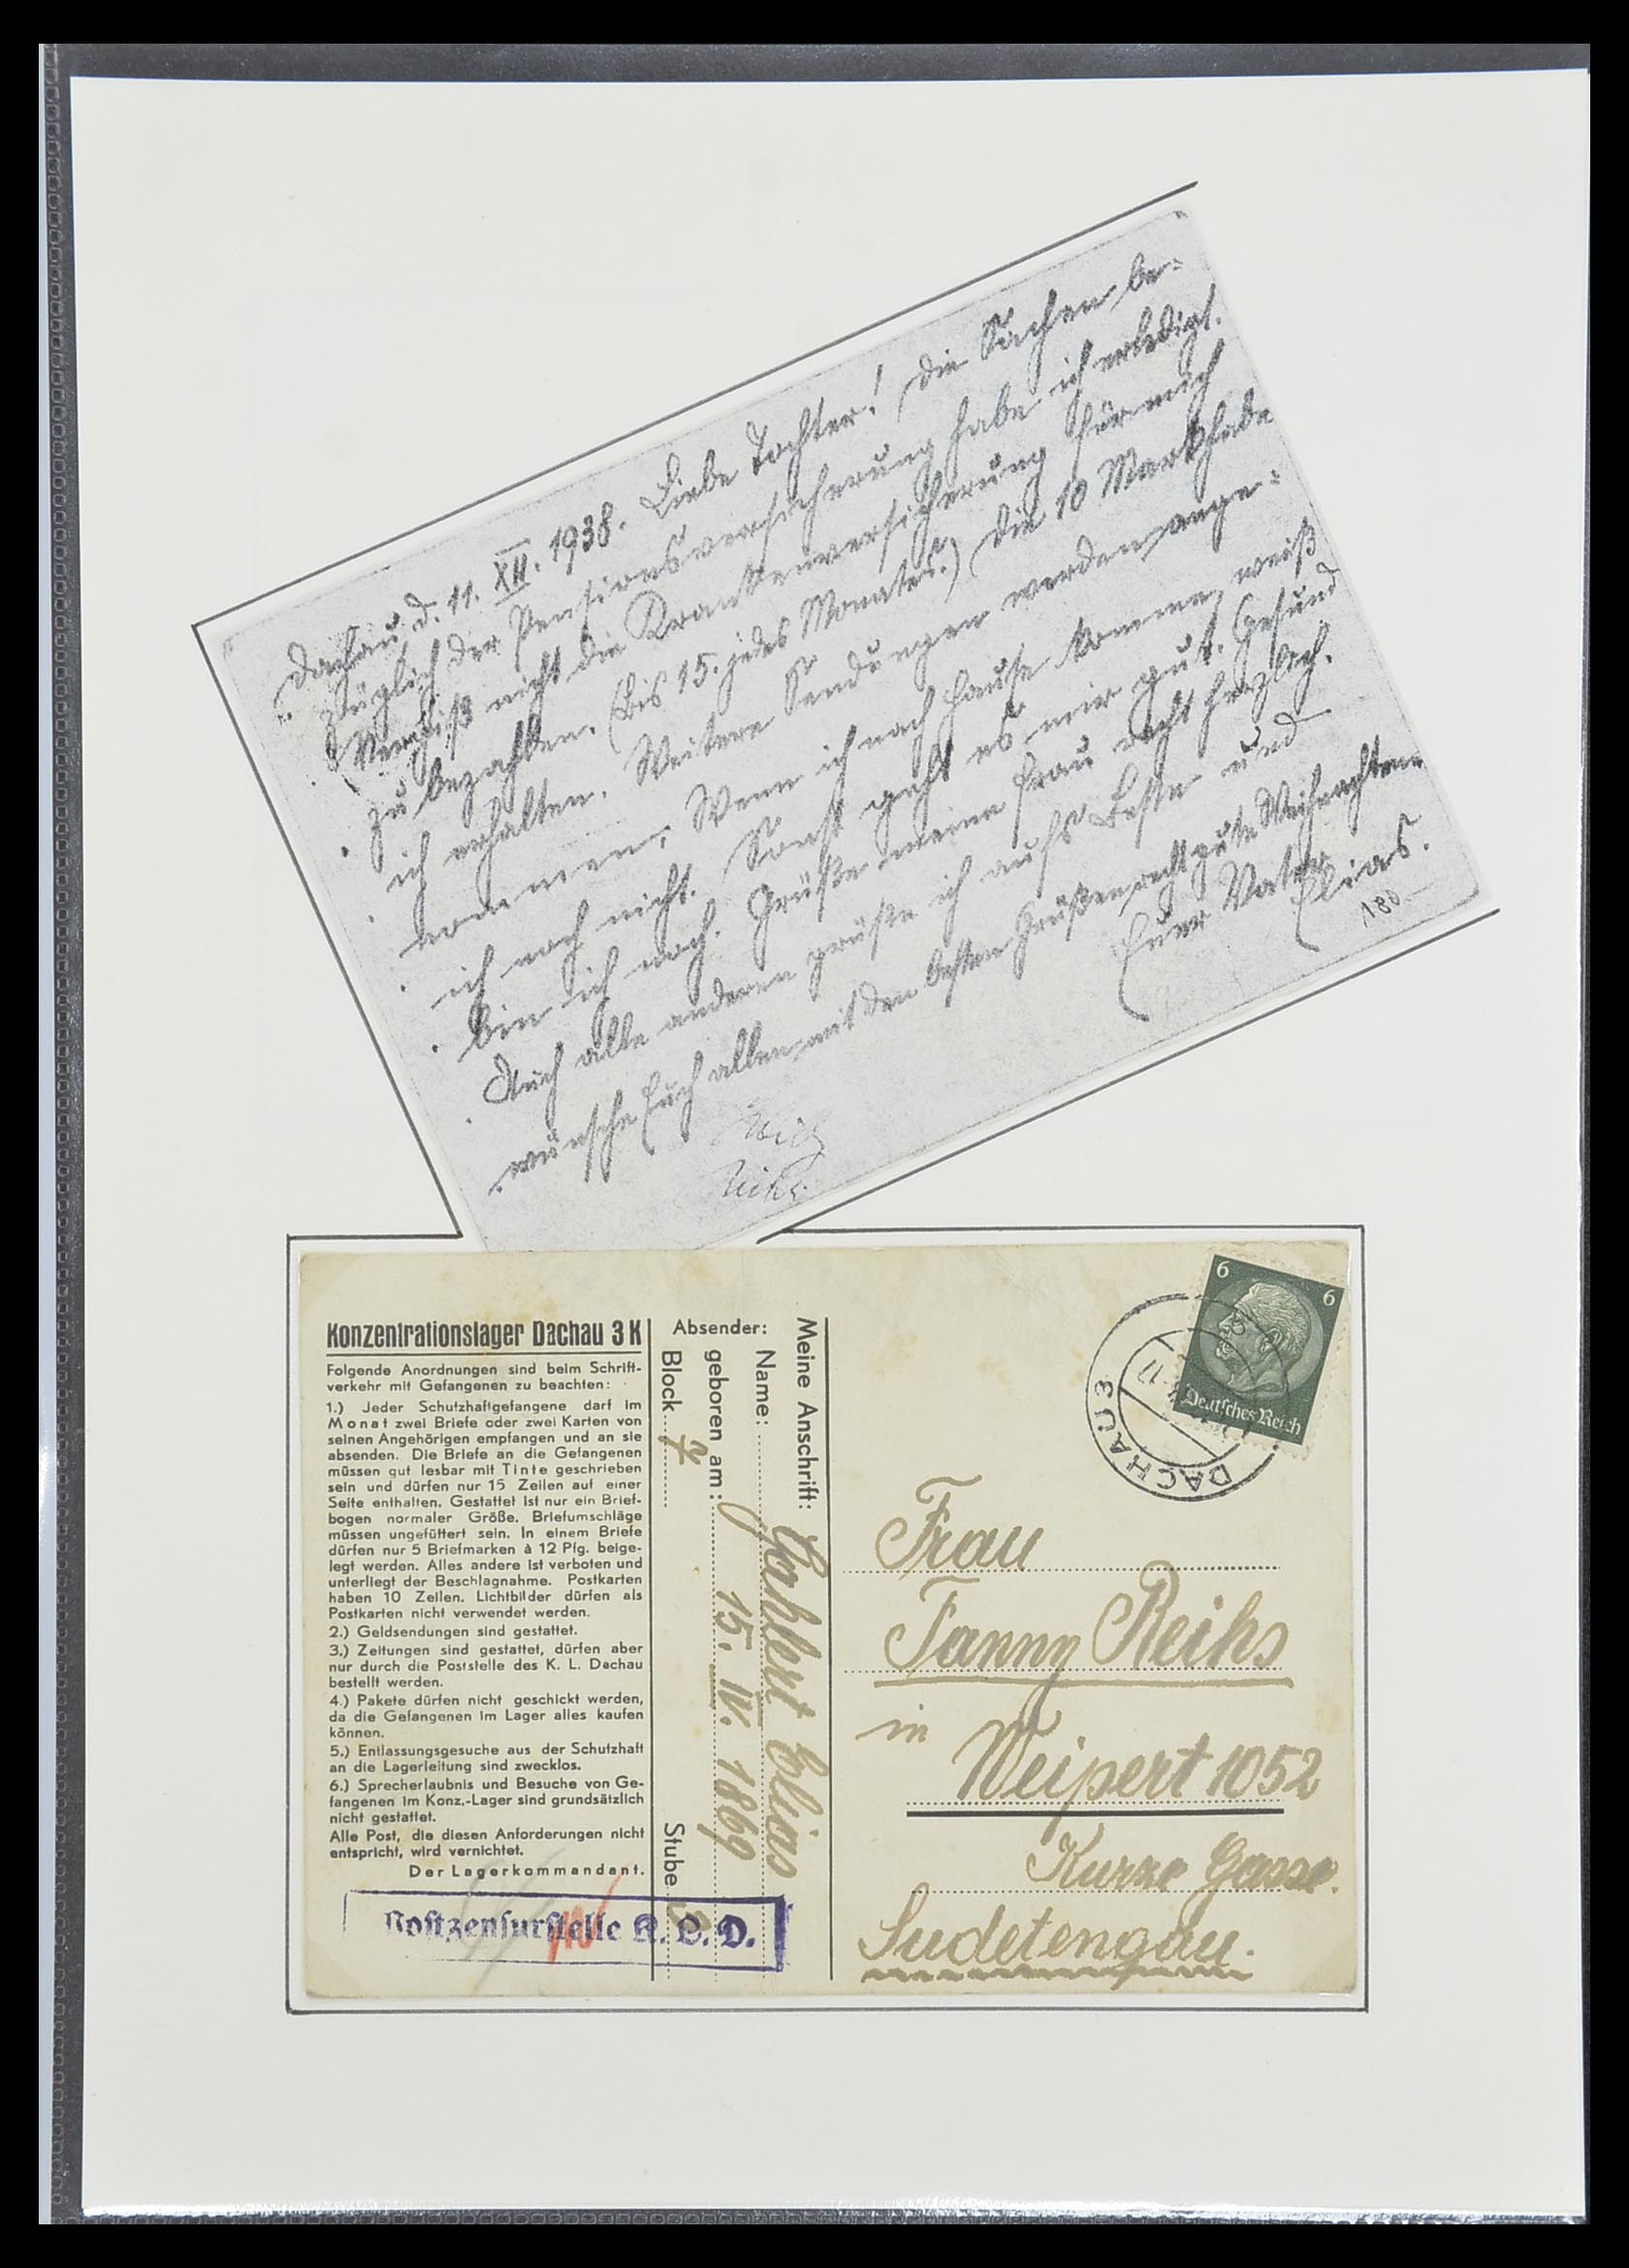 Dachau, d. 11. XII. 1938. Liebe Tochter! Die Sachen be-
züglich der Pensionsversicherung habe ich erledigt.
Vergiß nicht die Krankenversicherung für mich
zu bezahlen. (Bis 15. jedes Monates.) Die 10 Mark habe
ich erhalten. Weitere Sendungen werden ange-
nommen. Wenn ich nach Hause komme, weiß
ich noch nicht. Sonst geht es mir gut. Gesund
bin ich noch. Grüße meine Frau recht herzlich.
Auch alle anderen grüße ich aufs Beste und
wünsche Euch allen mit den besten Grüßen recht gute Weihnachten
Euer Vater
Elias.
180
Reihs
Konzentrationslager Dachau 3 K
Folgende Anordnungen sind beim Schrift-
verkehr mit Gefangenen zu beachten:
1.) Jeder Schutzhaftgefangene darf im
Monat zwei Briefe oder zwei Karten von
seinen Angehörigen empfangen und an sie
absenden. Die Briefe an die Gefangenen
müssen gut lesbar mit Tinte geschrieben
sein und dürfen nur 15 Zeilen auf einer
Seite enthalten. Gestattet ist nur ein Brief-
bogen normaler Größe. Briefumschläge
müssen ungefüttert sein. In einem Briefe
dürfen nur 5 Briefmarken à 12 Pfg. beige-
legt werden. Alles andere ist verboten und
unterliegt der Beschlagnahme. Postkarten
haben 10 Zeilen. Lichtbilder dürfen als
Postkarten nicht verwendet werden.
2.) Geldsendungen sind gestattet.
3.) Zeitungen sind gestattet, dürfen aber
nur durch die Poststelle des K. L. Dachau
bestellt werden.
4.) Pakete dürfen nicht geschickt werden,
da die Gefangenen im Lager alles kaufen
können.
5.) Entlassungsgesuche aus der Schutzhaft
an die Lagerleitung sind zwecklos.
6.) Sprecherlaubnis und Besuche von Ge-
fangenen im Konz.-Lager sind grundsätzlich
nicht gestattet.
Alle Post, die diesen Anforderungen nicht
entspricht, wird vernichtet.
Der Lagerkommandant.
Postzensurstelle K. L. D.
Absender:
Meine Anschrift:
Name: Gahlert Elias
geboren am: 15. IV. 1869
Block 4 Stube 3
6 6
Deutsches Reich
DACHAU 3
Frau
Fanny Reihs
in
Weipert 1052
Kurze Gasse.
Sudetengau.